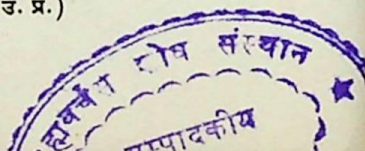 उ. प्र.)
शोध संस्थान
सम्पादकीय